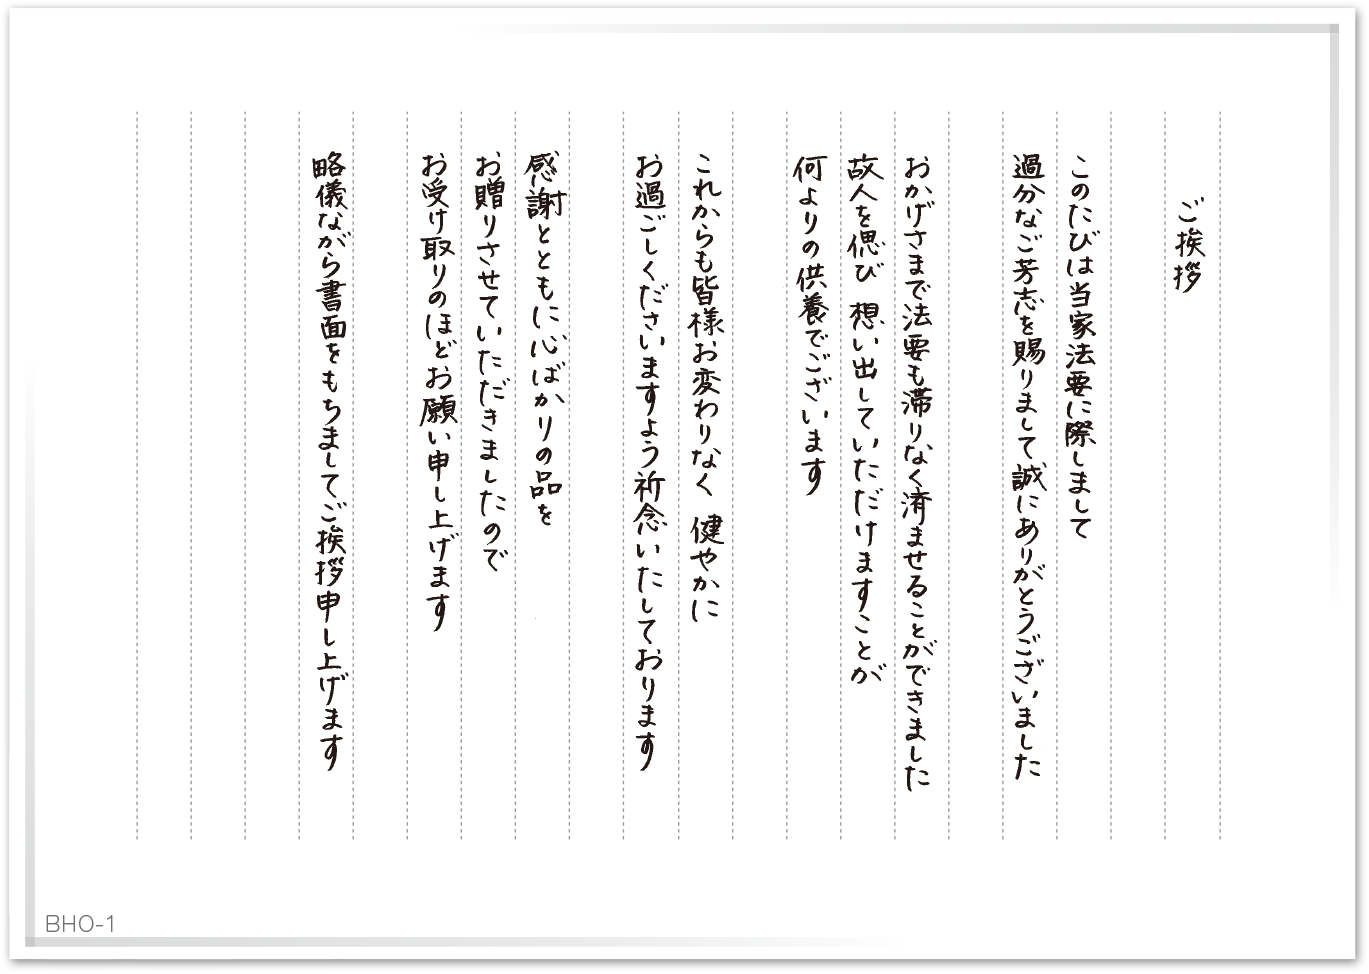 ご挨拶
このたびは当家法要に際しまして
過分なご芳志を賜りまして誠にありがとうございました
おかげさまで法要も滞りなく済ませることができました
故人を偲び 想い出していただけますことが
何よりの供養でございます
これからも皆様お変わりなく 健やかに
お過ごしくださいますよう祈念いたしております
感謝とともに心ばかりの品を
お贈りさせていただきましたので
お受け取りのほどお願い申し上げます
略儀ながら書面をもちましてご挨拶申し上げます
BHO-1